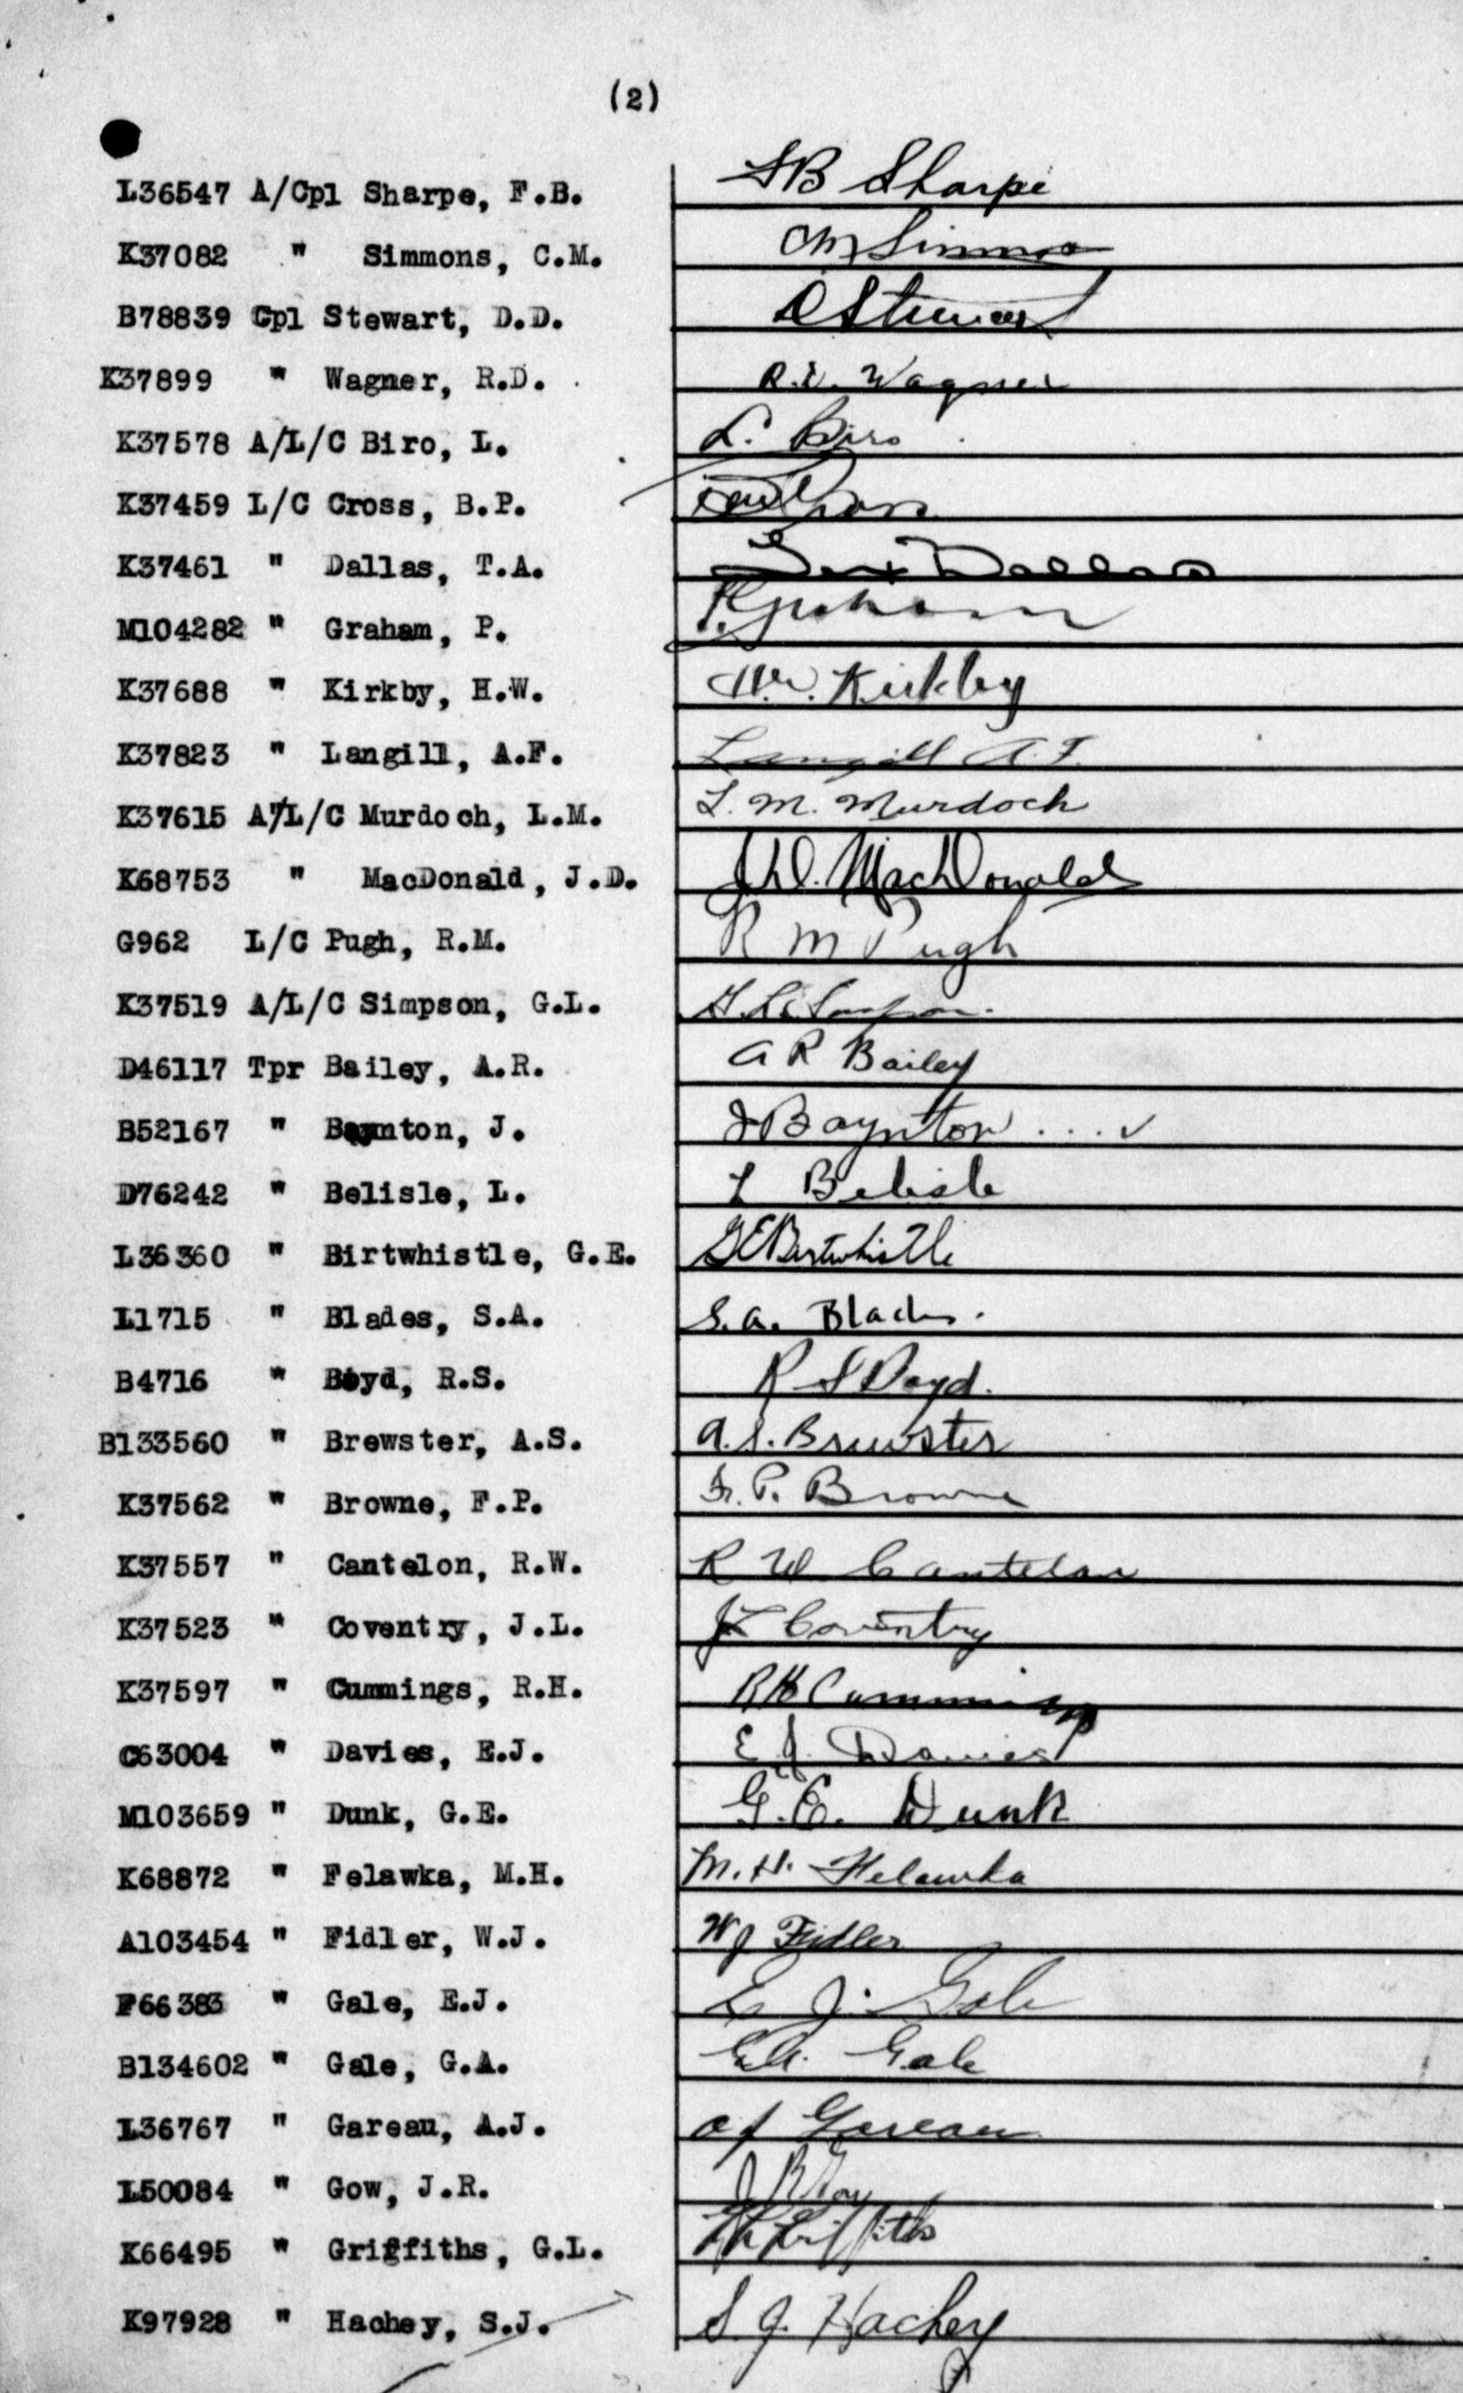 (2)
L36547 A/Cpl Sharpe, F.B. FB Sharpe
K37082 " Simmons, C.M. CM Simmons
B78839 Cpl Stewart, D.D. D Stewart
K37899 " Wagner, R.D. R.D. Wagner
K37578 A/L/C Biro, L. L. Biro
K37459 L/C Cross, B.P.
K37461 " Dallas, T.A. Dallas
M104282 " Graham, P. P. Graham
K37688 " Kirkby, H.W. H.W. Kirkby
K37823 " Langill, A.F. Langill A.F.
K37615 A/L/C Murdoch, L.M. L.M. Murdoch
K68753 " MacDonald, J.D. J.D. MacDonald
G962 L/C Pugh, R.M. R M Pugh
K37519 A/L/C Simpson, G.L. G L Simpson.
D46117 Tpr Bailey, A.R. A R Bailey
B52167 " Baynton, J. J Baynton
D76242 " Belisle, L. L Belisle
L36360 " Birtwhistle, G.E. GE Birtwhistle
L1715 " Blades, S.A. S.A. Blades.
B4716 " Boyd, R.S. R S Boyd.
B133560 " Brewster, A.S. A.S. Brewster
K37562 " Browne, F.P. F.P. Browne
K37557 " Cantelon, R.W. R W Cantelon
K37523 " Coventry, J.L. JL Coventry
K37597 " Cummings, R.H. RH Cummings
C63004 " Davies, E.J. E J. Davies
M103659 " Dunk, G.E. G.E. Dunk
K68872 " Felawka, M.H. M.H. Felawka
A103454 " Fidler, W.J. WJ Fidler
F66383 " Gale, E.J. E J. Gale
B134602 " Gale, G.A. G.A. Gale
L36767 " Gareau, A.J. AJ Gareau
L50084 " Gow, J.R. J R Gow
K66495 " Griffiths, G.L. Griffiths
K97928 " Hachey, S.J. S.J. Hachey